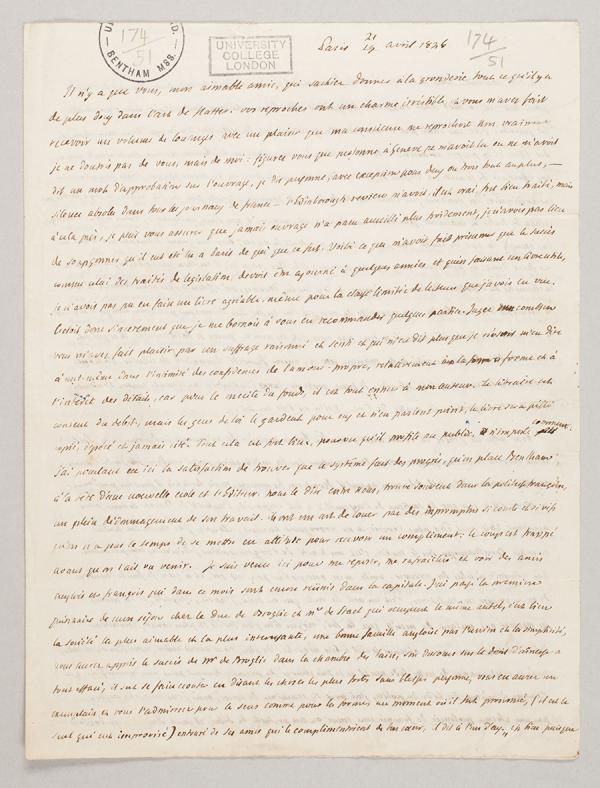 174
51
BENTHAM MSS.
UNIVERSITY
COLLEGE
LONDON
Paris 21/19 avril 1826
174
51
Il n'y a que vous, mon aimable amie, qui sachiez donner à la gronderie tout ce qu'il y a
de plus doux dans l'art de flatter. vos reproches ont un charme irrésistible, & vous m'avez fait
recevoir un volume de louanges avec un plaisir que ma conscience ne reprochoit non vraiment
je ne doutois pas de vous, mais de moi: figurez vous que personne à Genève ne m'avoit lu ou ne m'avoit
dit un mot d'approbation sur l'ouvrage, je dis personne, avec exception pour deux ou trois tout au plus,—
silence absolu dans tous les journaux de france — l'Edinborough review m'avoit, il est vrai fort bien traité, mais
à cela près, je puis vous assurer que jamais ouvrage n'a paru accueilli plus froidement, je n'avois pas lieu
de soupçonner qu'il eut été lu à Paris de qui que ce fut. Voilà ce qui m'avoit fait présumer que le succès
comme celui des traités de législation, devoit être ajourné à quelques années et qu'en faisant un livre utile,
je n'avois pas pu en faire un livre agréable même pour la classe limitée de lecteurs que j'avois en vue.
C'étoit donc sincèrement que je me bornois à vous en recommander quelque partie. Jugez combien
vous m'avez fait plaisir par un suffrage raisonné et senti et qui m'en dit plus que je n'osois m'en dire
à moi-même dans l'intimité des confidences de l'amour-propre, relativement à la forme et à
l'intérêt des détails, car pour le mérite du fonds, il est tout entier à mon auteur. Le libraire est
content du débit, mais les gens de loi le gardent pour eux et n'en parlent point, le livre sera pillé
copié, dépécé et jamais cité. Tout cela est fort bien, pourvu qu'il profite au public. n'importe comment
J'ai pourtant eu ici la satisfaction de trouver que le système fait des progrès, qu'on place Bentham
à la tête d'une nouvelle école et l'Editeur, pour le dire entre nous, trouve souvent dans la politesse françoise,
un plein dédommagement de son travail. ils ont un art de louer par des impromptus si courts et si vifs
qu'on n'a pas le temps de se mettre en attitude pour recevoir un compliment. le coup est frappé
avant qu'on l'ait vu venir. Je suis venu ici pour me reposer, me rafraichir et voir des amis
anglois et françois qui dans ce mois sont encore réunis dans la capitale. J'ai passé la première
quinzaine de mon séjour chez le duc de Broglie et Mr de Stael qui occupent le même hotel, c'est bien
la société la plus aimable et la plus intéressante, une bonne famille angloise par l'union et la simplicité,
vous aurez appris le succès de Mr de Broglie dans la chambre des Pairs, son discours sur le droit d'ainesse a
tout effacé, il sut se faire écouter en disant les choses les plus fortes sans blesser personne, vous en aurez un
exemplaire et vous l'admirerez pour le sens comme pour les formes au moment où il fut prononcé, (il est le
seul qui eut improvisé) entouré de ses amis qui le complimentoient de bon cœur, il dit à l'un d'eux, eh bien puisque